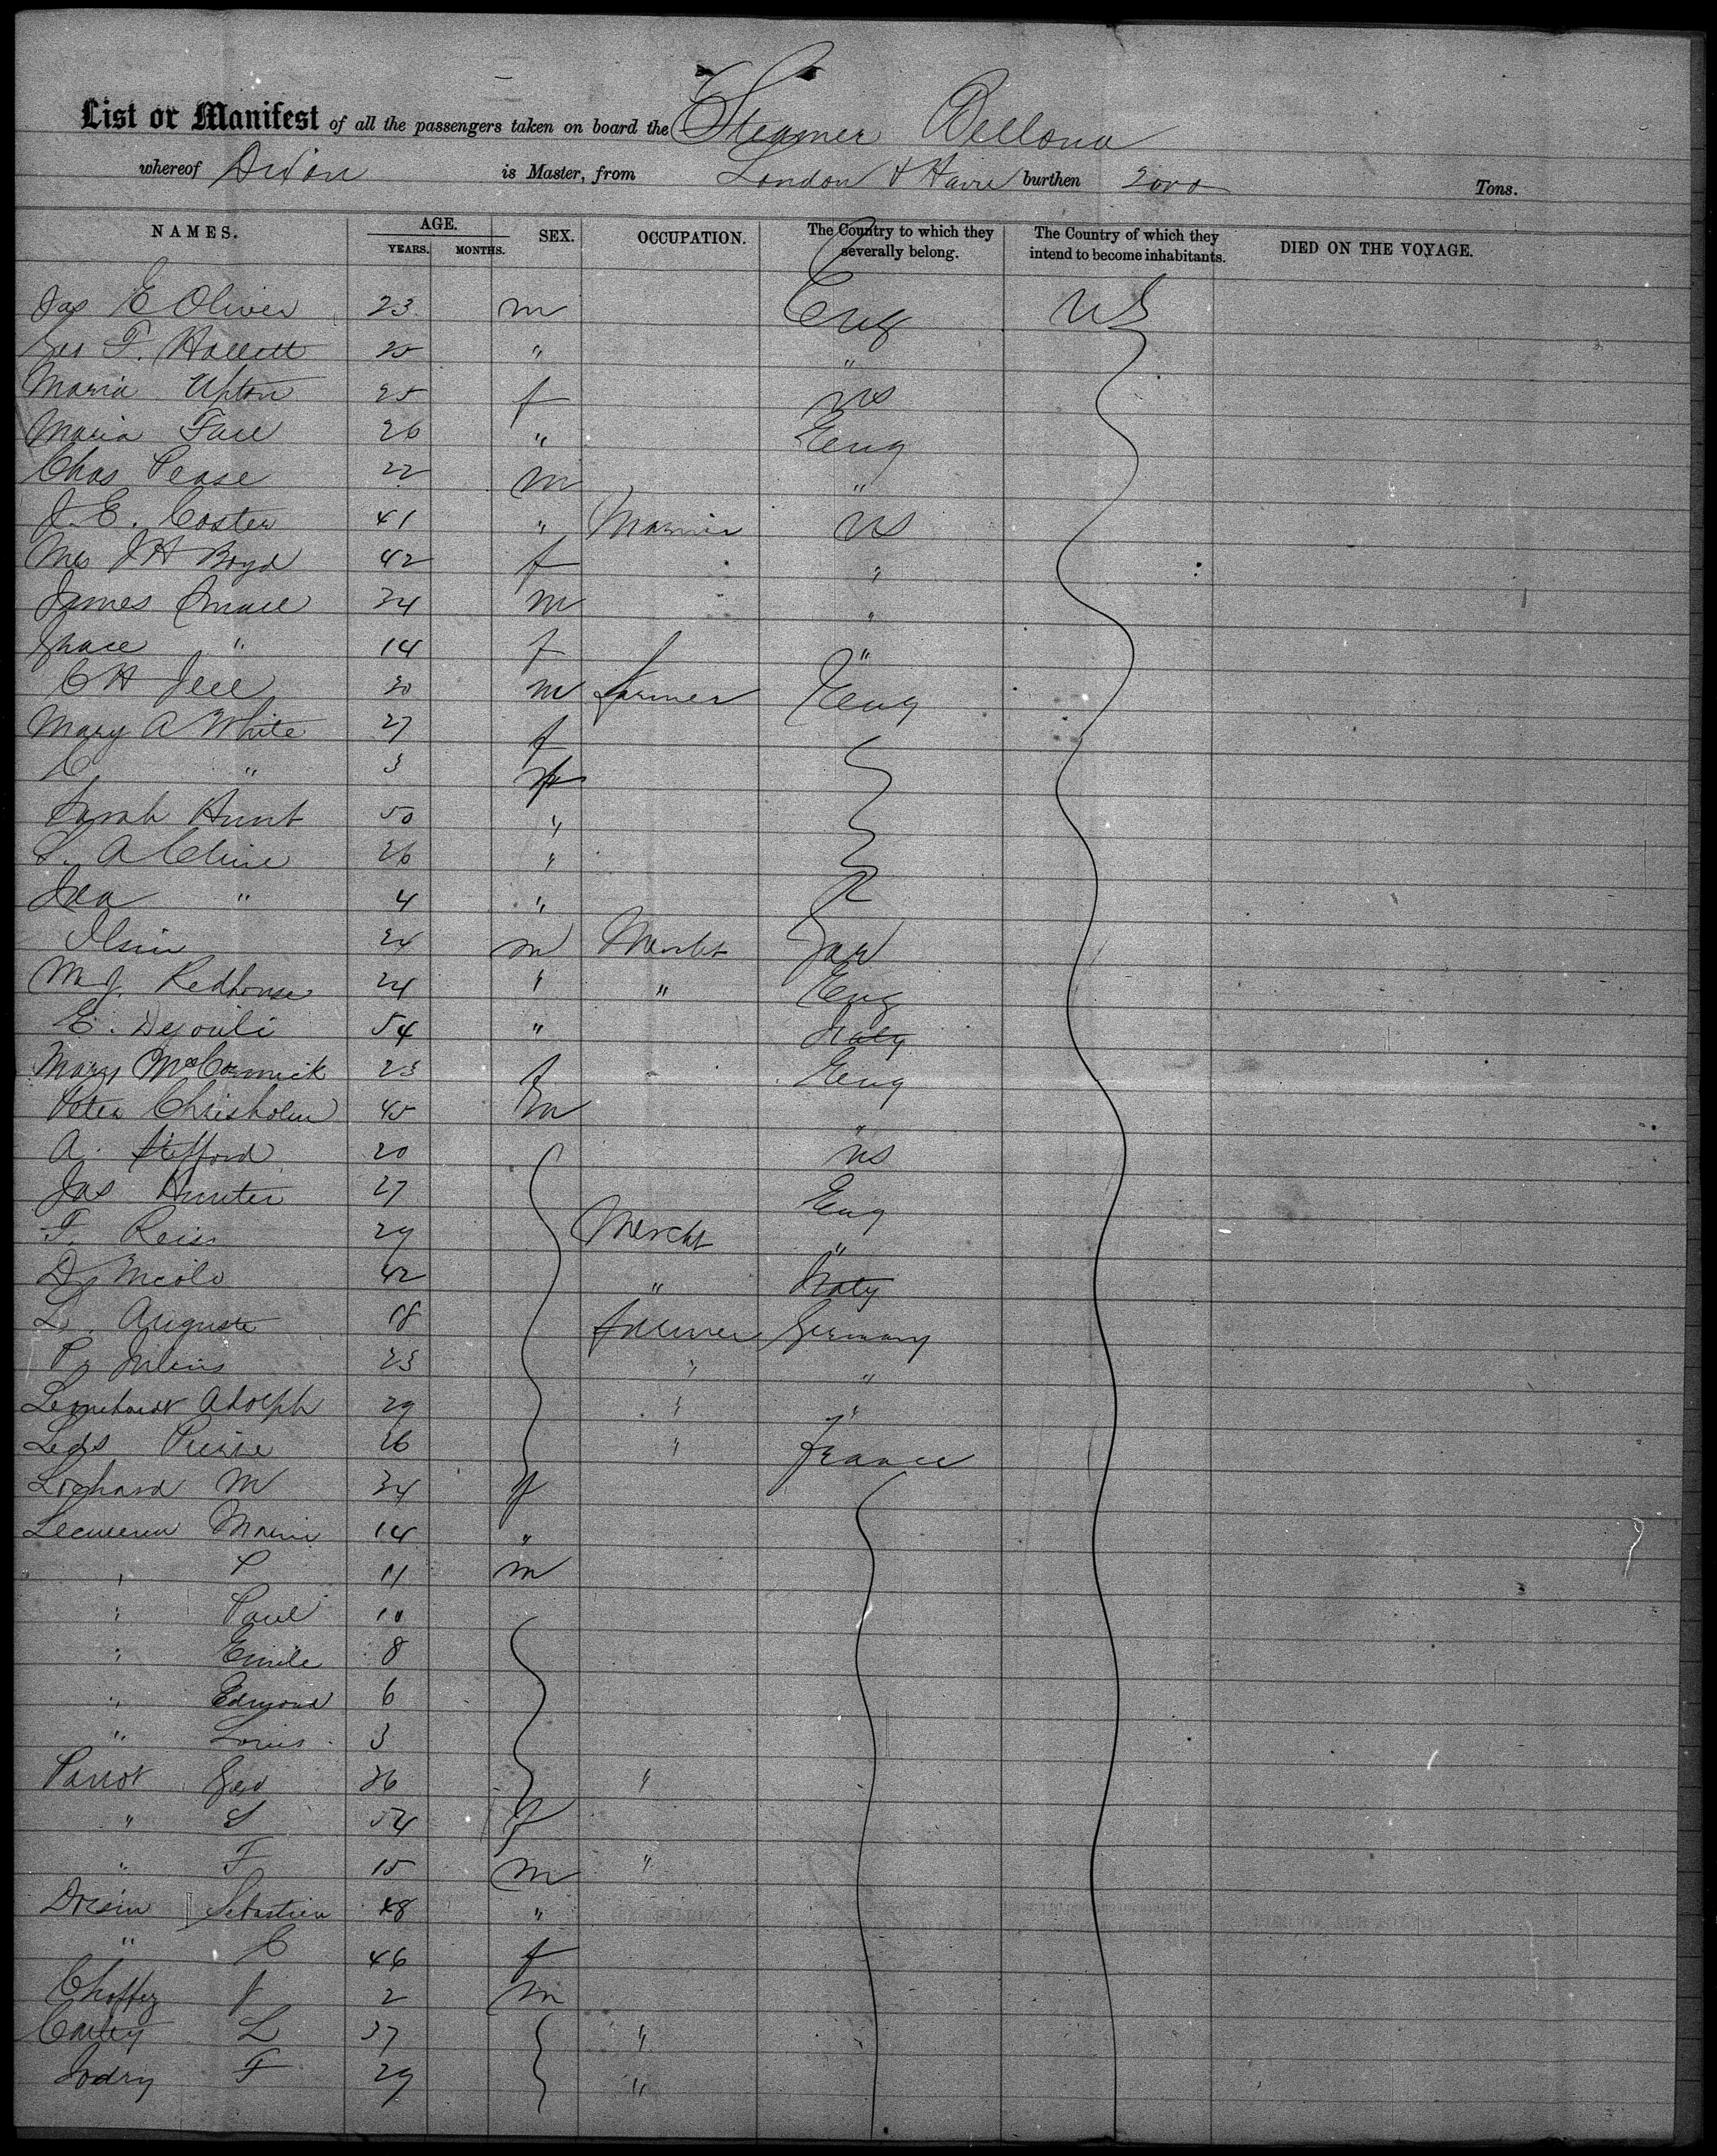 List or Manifest of all the passengers taken on board the Steamer Bellona
whereof Dixon is Master, from London & Havre burthen 2000 Tons.
NAMES. AGE. YEARS. MONTHS. SEX. OCCUPATION. The Country to which they severally belong. The Country of which they intend to become inhabitants. DIED ON THE VOYAGE.
Jas E Oliver 23 m Eng US
F. Hallett 25 "  "
Maria Upton 25 f US
Maria 26 " Eng
Chas Pease 22 m "
J. E. Coster 41 " US
Mrs J H Boyd 42 f "
James 34 m "
Grace " 14 f "
C H Jell 30 m Farmer Eng
Mary A White 27 f
C " 3
Sarah Hunt 50 "
S. A Cline 26 "
Ida " 4 "
24 m
M J. Redhouse 24 " " Eng
E. 54 " Italy
Mary McCormick 23 f Eng
Peter Chrisholm 45 m "
A. Stefford 20 US
Jas Hunter 27 Eng
F. Reiss 29 Mercht "
D. Nicolo 42 " Italy
L. Auguste 18 Farmer Germany
P. Julius 23 " "
Leonhardt Adolph 29 " "
Pierre 26 " France
Lochard M 34 f
Marie 14 "
" P 11 m
" Paul 10
" Emile 8
" Edmond 6
" Louis 3
Parrot Geo 36 "
" S 54 f
" F 15 m "
Sebastien 48 "
" C 46 f
Choffey J 2 m
L 37 "
Jodry F 29 "